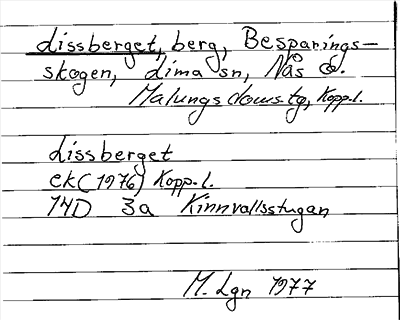 Lissberget, berg, Besparings-
skogen, Lima sn, Nås o.
Malungs domstg, Kopp.l.
Lissberget
ek (1976) Kopp.l.
14D 3a Kinnvallsstugan
M. Lgn 1977